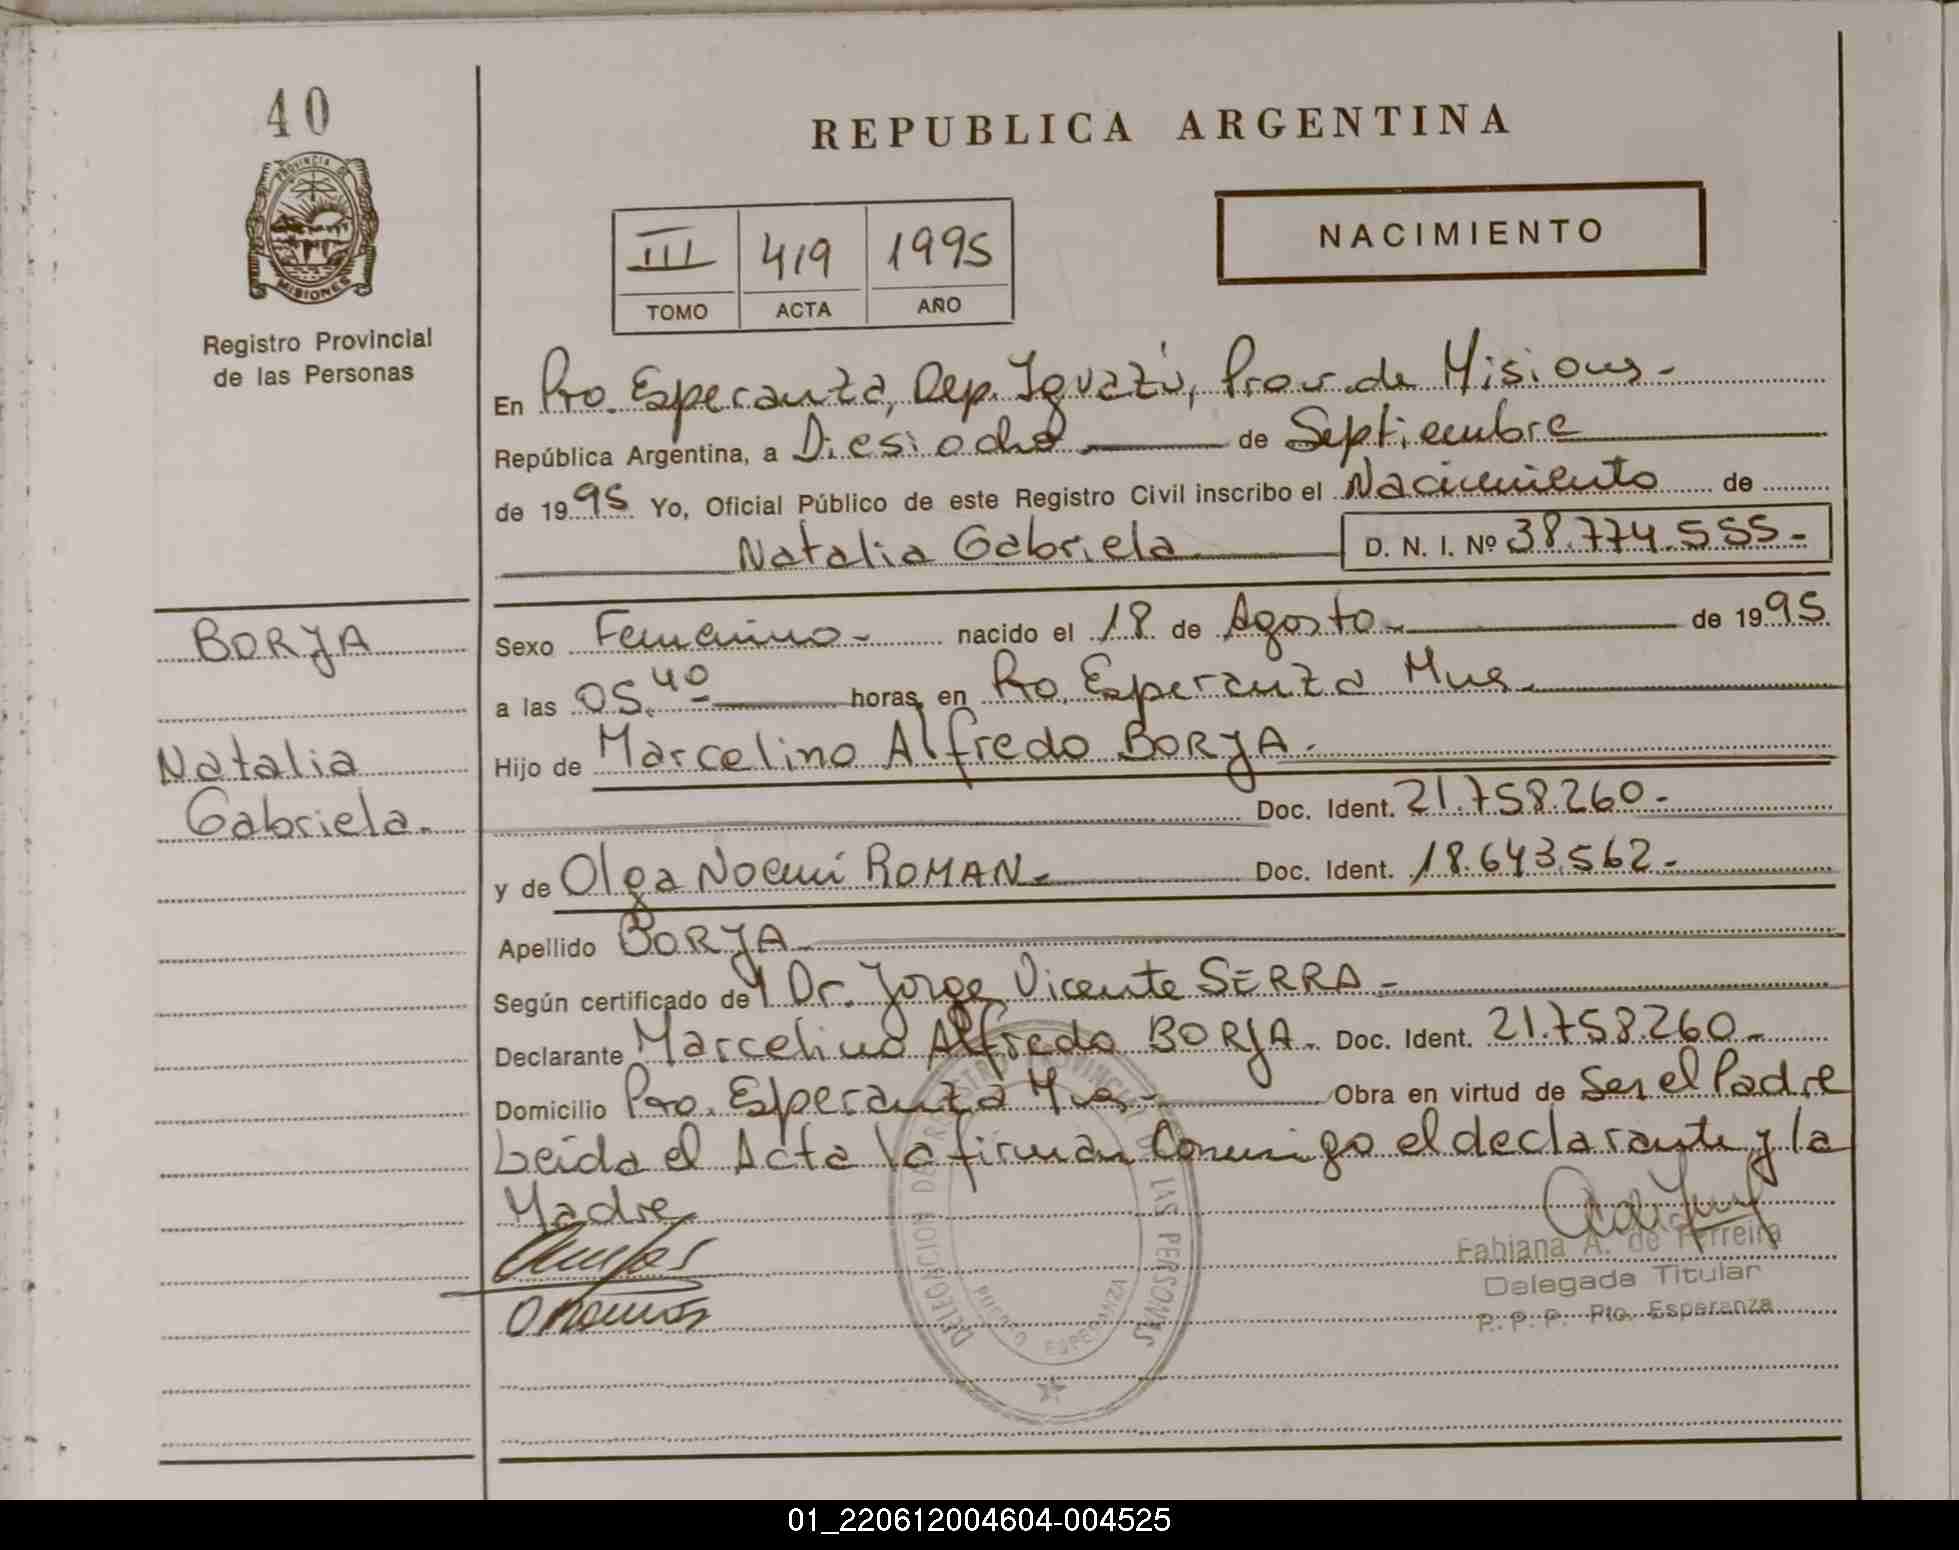 40
PROVINCIA DE
MISIONES
Registro Provincial
de las Personas
REPUBLICA ARGENTINA
III 419 1995
TOMO ACTA AÑO
NACIMIENTO
En Pto. Esperanza, Dep. Iguazú, Prov. de Misiones-
República Argentina, a Diesiocho de Septiembre
de 1995 Yo, Oficial Público de este Registro Civil inscribo el Nacimiento de
Natalia Gabriela D. N. I. Nº 38.774.555-
BORJA
Natalia
Gabriela.
Sexo Femenino- nacido el 18 de Agosto- de 1995
a las 05.40 horas, en Pto. Esperanza Mnes.
Hijo de Marcelino Alfredo BORJA.
Doc. Ident. 21.758.260-
y de Olga Noemí ROMAN- Doc. Ident. 18.643.562-
Apellido BORJA-
Según certificado del Dr. Jorge Vicente SERRA-
Declarante Marcelino Alfredo BORJA- Doc. Ident. 21.758.260-
Domicilio Pto. Esperanza Mnes- Obra en virtud de Ser el Padre
Leida el Acta la firman Conmigo el declarante y la
Madre
DELEGACION DEL REGISTRO PROVINCIAL DE LAS PERSONAS
PUERTO ESPERANZA
Fabiana A. de Ferreira
Delegada Titular
R. P. P. Pto. Esperanza
01_220612004604-004525